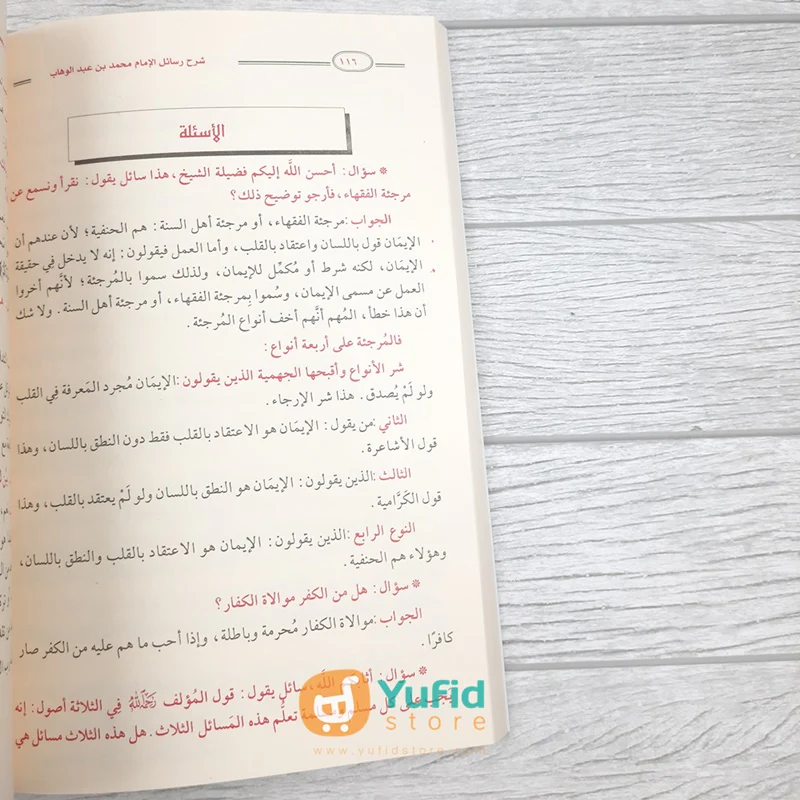 شرح رسائل الإمام محمد بن عبد الوهاب ١١٦
الأسئلة
* سؤال: أحسن اللَّه إليكم فضيلة الشيخ، هذا سائل يقول: نقرأ ونسمع عن
مرجئة الفقهاء، فأرجو توضيح ذلك؟
الجواب: مرجئة الفقهاء، أو مرجئة أهل السنة: هم الحنفية؛ لأن عندهم أن
الإيمَان قول باللسان واعتقاد بالقلب، وأما العمل فيقولون: إنه لا يدخل فِي حقيقة
الإيمَان، لكنه شرط أو مُكمِّل للإيمان، ولذلك سموا بالمُرجئة؛ لأنَّهم أخروا
العمل عن مسمى الإيمان، وسُموا بِمرجئة الفقهاء، أو مرجئة أهل السنة. ولا شك
أن هذا خطأ، المُهم أنَّهم أخف أنواع المُرجئة.
فالمُرجئة على أربعة أنواع:
شر الأنواع وأقبحها الجهمية الذين يقولون: الإيمَان مُجرد المَعرفة فِي القلب
ولو لَمْ يُصدق. هذا شر الإرجاء.
الثاني: من يقول: الإيمَان هو الاعتقاد بالقلب فقط دون النطق باللسان، وهذا
قول الأشاعرة.
الثالث: الذين يقولون: الإيمَان هو النطق باللسان ولو لَمْ يعتقد بالقلب، وهذا
قول الكَرَّامية.
النوع الرابع: الذين يقولون: الإيمان هو الاعتقاد بالقلب والنطق باللسان،
وهؤلاء هم الحنفية.
* سؤال: هل من الكفر موالاة الكفار؟
الجواب: موالاة الكفار مُحرمة وباطلة، وإذا أحب ما هم عليه من الكفر صار
كافرًا.
* سؤال: أثابكم اللَّه، سائل يقول: قول المُؤلف رَحِمَهُ اللَّهُ فِي الثلاثة أصول: إنه
يجب على كل مسلم ومسلمة تعلُّم هذه المَسائل الثلاث. هل هذه الثلاث مسائل هي
Yufid
store
www.yufidstore.com